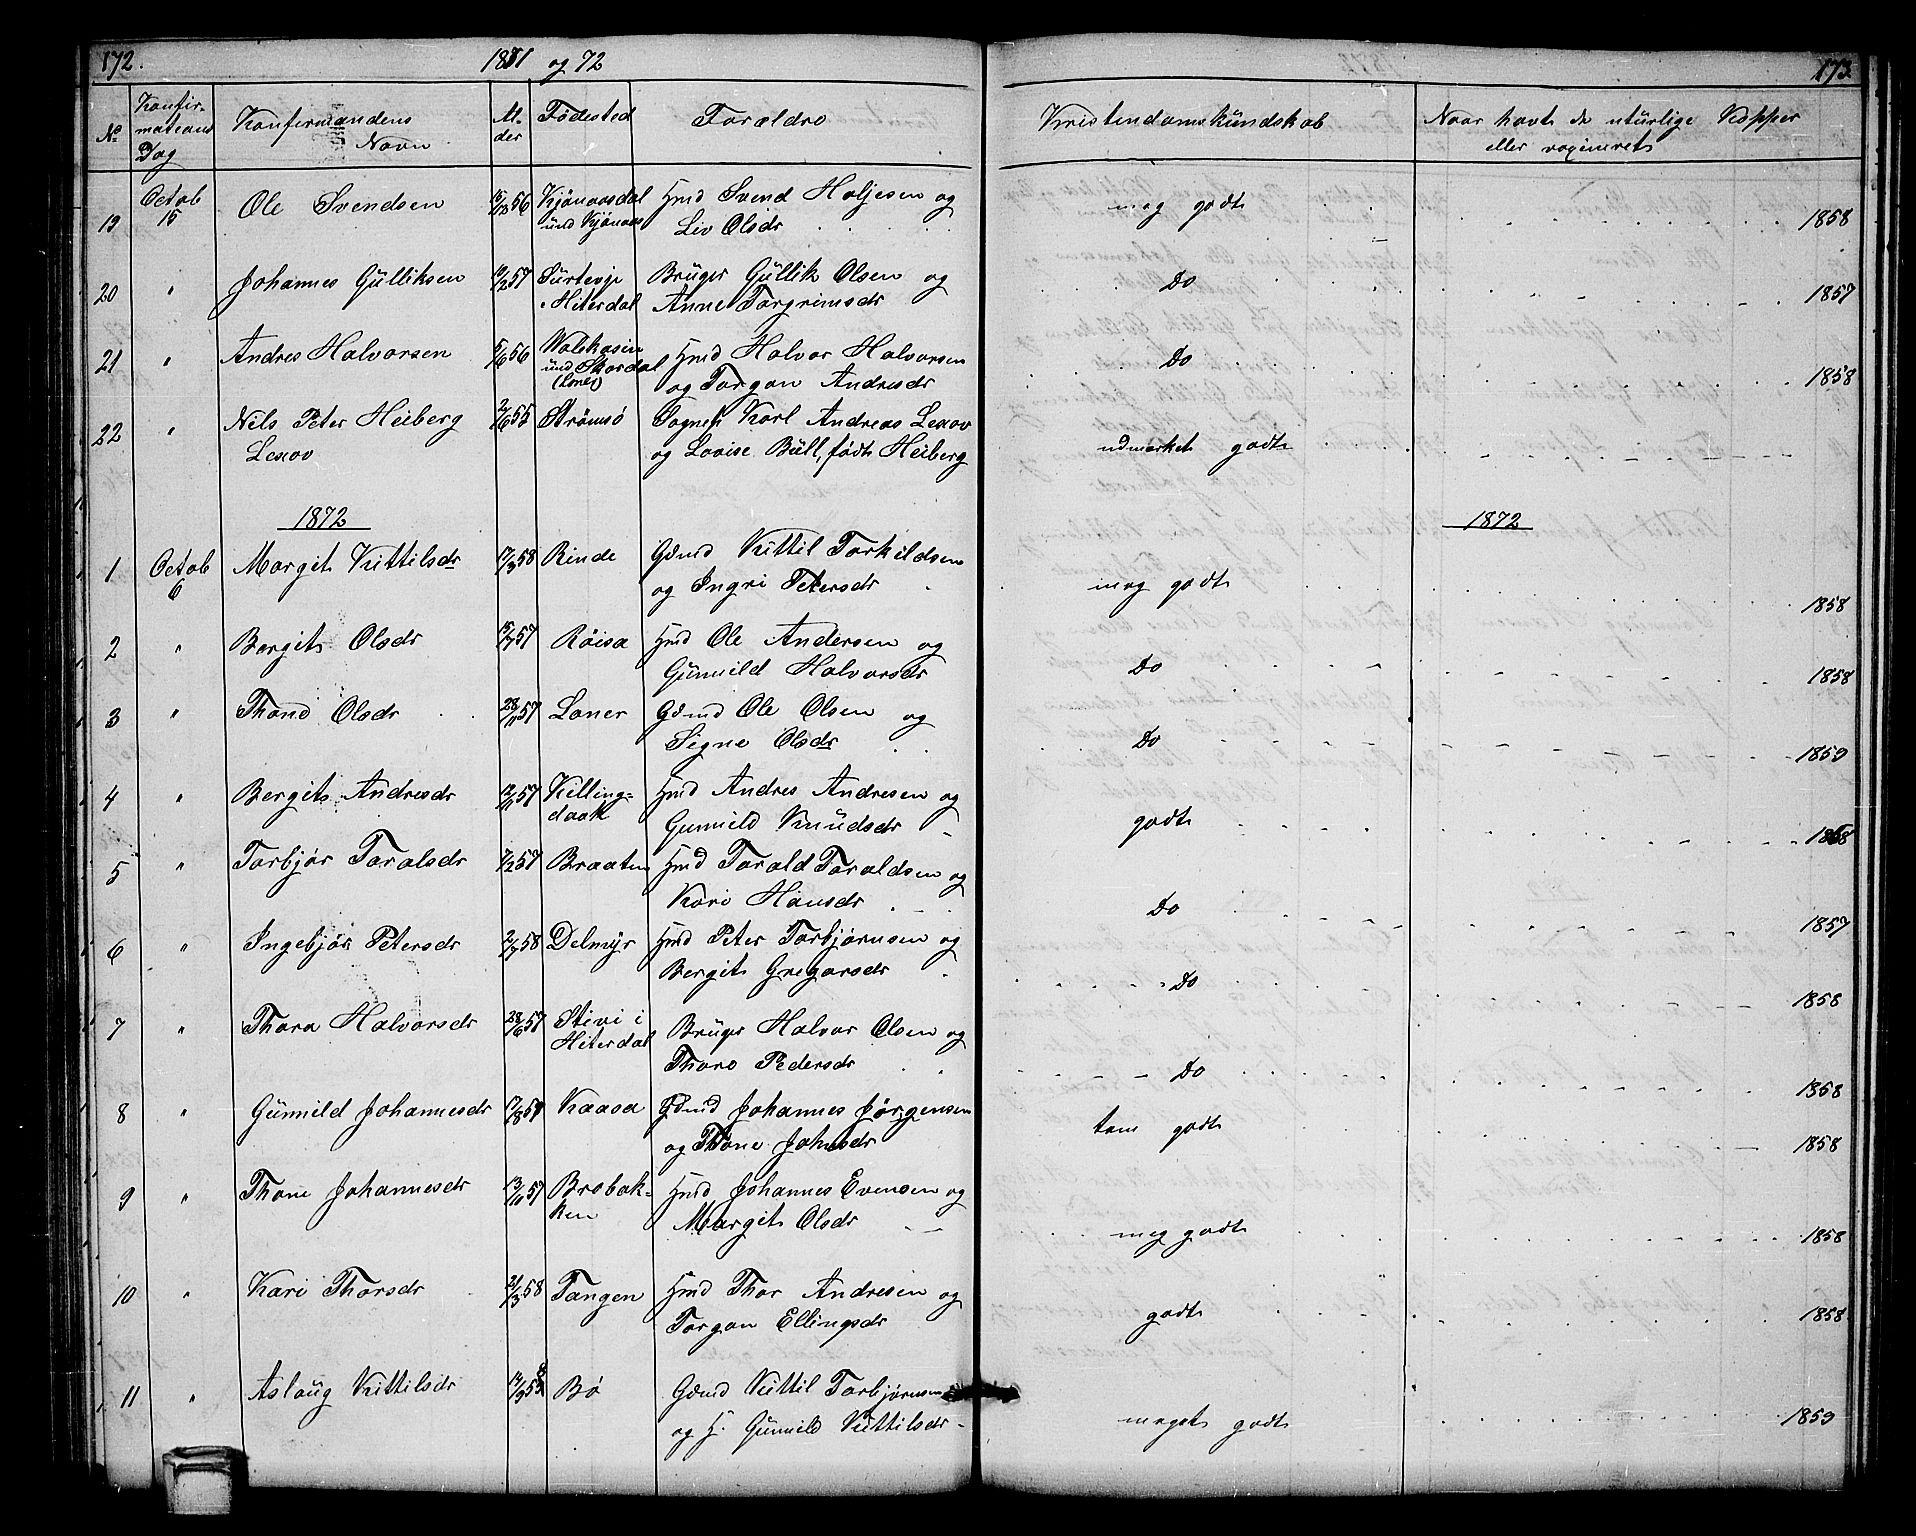 172. 1871 og 72 173.
No Konfirmations Dag Konfirmandens Navn Alder Fødested Forældre Kristendomskundskab Naar havt de naturlige Kopper eller vaxineret
19 Octob 15 Ole Svendsen 56 Kjønaasdal Hmd Svend Holjesen og
und Kjønaas Liv Olsdr meg godt 1858
20 " Johannes Gulliksen 57 Surtevje Bruger Gullik Olsen og
i Hiterdal Anne Torgrimsdr Do 1857
21 " Andres Halvorsen 5/6 56 Hmd Halvor Halvorsen
und Skardal (Loner) og Torgon Andresdr Do 1858
22 " Nils Peter Heiberg 2/6 55 Strømsø Sognep Karl Andreas Lexov
Lexov og Lovise Bull, født Heiberg udmærket godt
1872 1872
1 Octob 6 Margit Kittilsdr 17/3 58 Rinde Gdmd Kittil Torkildsen
og Ingri Petersdr meg godt 1858
2 " Bergit Olsdr 15/7 57 Røisa Hmd Ole Andersen og
Gunnild Halvorsdr Do 1858
3 " Thone Olsdr 28/11 57 Loner Gdmd Ole Olsen og
Signe Olsdr Do 1859
4 " Bergit Andresdr 12/11 57 Killing- Hmd Andres Andresen og
daak Gunnild Knudsdr godt 1858
5 " Torbjør Toralsdr 7/2 57 Braaten Hmd Torald Toraldsen og
Kari Hansdr Do 1857
6 " Ingebjør Petersdr 2/7 58 Delmyr Hmd Peter Torbjørnsen og
Bergit Gregarsdr Do 1858
7 " Thora Halvorsdr 28/6 57 Stivi i Bruger Halvor Olsen og
Hiterdal Thoro Pedersdr Do 1858
8 " Gunnild Johannesdr 17/8 57 Kaasa Gdmd Johannes Jørgensen
og Thone Johnsdr tem godt 1858
9 " Thone Johannesdr 13/11 57 Brobak- Hmd Johannes Evensen og
ken Margit Olsdr meg godt 1858
10 " Kari Thorsdr 21/3 58 Tangen Hmd Thor Andresen og
Torgon Ellingsdr godt 1858
11 " Aslaug Kittilsdr 14/9 58 Bø Gdmd Kittil Torbjørnsen
og H. Gunnild Kittilsdr meget godt 1859